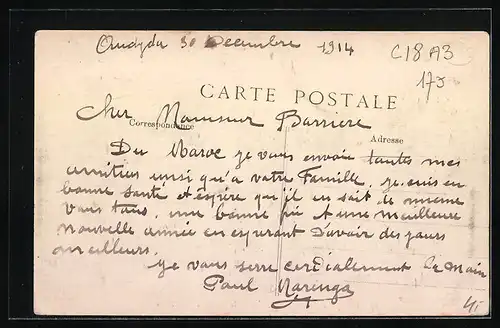 Oudjda 30 Decembre 1914
C18 A3
175
CARTE POSTALE
Cher Monsieur Barriere
Correspondance
Adresse
Du Maroc je vous envoie toutes mes
amities insi qu'a votre Famille, je suis en
bonne santé et éspére qu'il en soit de meme
vous tous, une bonne fin et une meilleure
nouvelle année en esperant d'avoir des jours
meilleurs.
Je vous serre cordialement la main
Paul